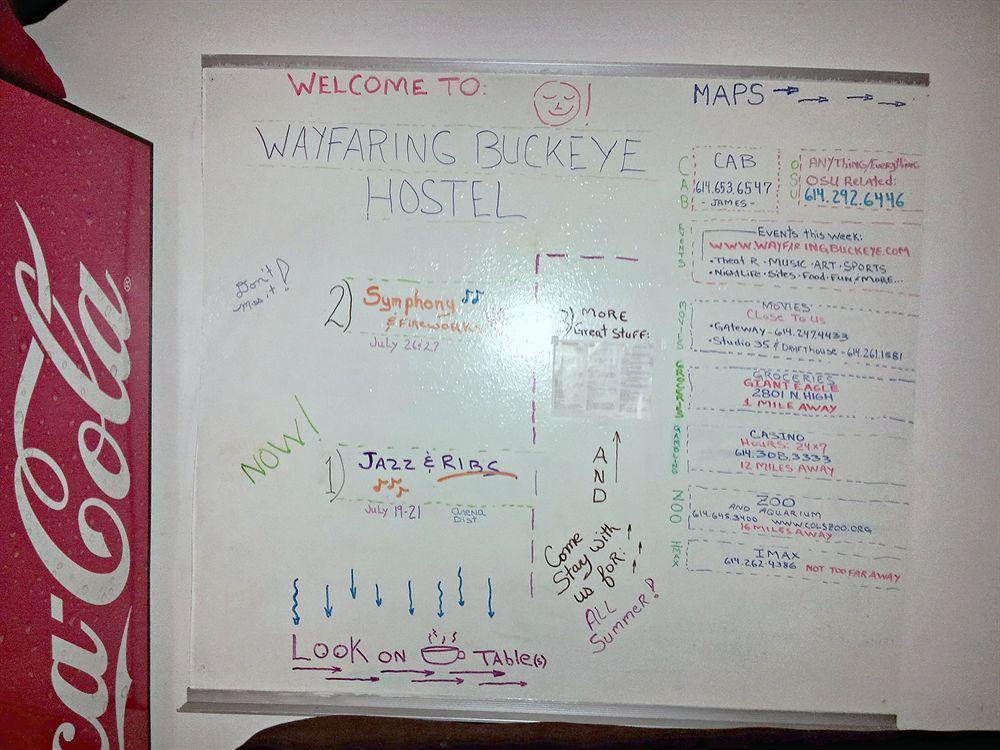 Coca-Cola
®
WELCOME TO:
!
WAYFARING BUCKEYE
HOSTEL
Don't
Miss it!
2) Symphony
& FIREWORKS
July 26:27
NOW!
1) JAZZ & RIBS
July 19-21 arena
Dist
LOOK ON TABLE(s)
MORE
Great STUFF:
AND
Come
Stay with
us for:
ALL
Summer!
MAPS
CAB
CAB
614.653.6547
- JAMES -
OSU
ANYTHING/Everything
OSU Related:
614.292.6446
EVENTS
EVENTS this week:
WWW.WAYFARINGBUCKEYE.COM
•Theat R•MUSIC•ART•SPORTS
•NightLife•Sites•Food•FUN & MORE...
MOVIES
MOVIES
Close To Us
•Gateway - 614.247.4433
•Studio 35 & DRAFThouse - 614.261.1581
GROCERIES
GIANT EAGLE
2801 N. HIGH
1 MILE AWAY
CASINO
HOURS: 24x7
614.308.3333
12 MILES AWAY
ZOO
ZOO
AND AQUARIUM
614.645.3400 WWW.COLSZOO.ORG
16 MILES AWAY
IMAX
614.262.4386 NOT TOO FAR AWAY